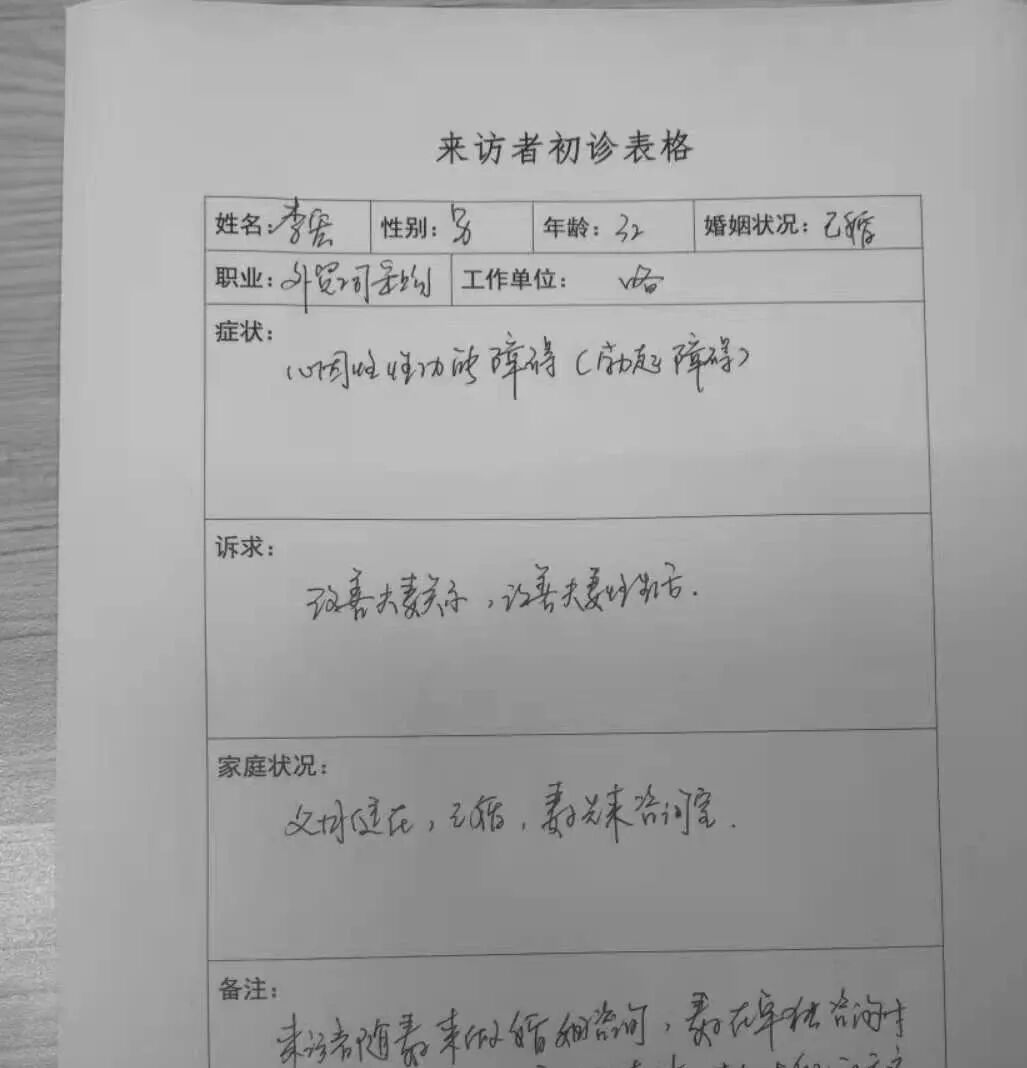 来访者初诊表格
姓名：李宏 性别：男 年龄：32 婚姻状况：已婚
职业：外贸公司采购 工作单位：略
症状：
心因性性功能障碍（勃起障碍）
诉求：
改善夫妻关系，改善夫妻性生活.
家庭状况：
父母健在，已婚，妻子先来咨询室.
备注：
来访者随妻子来做婚姻咨询，妻子在单独咨询时